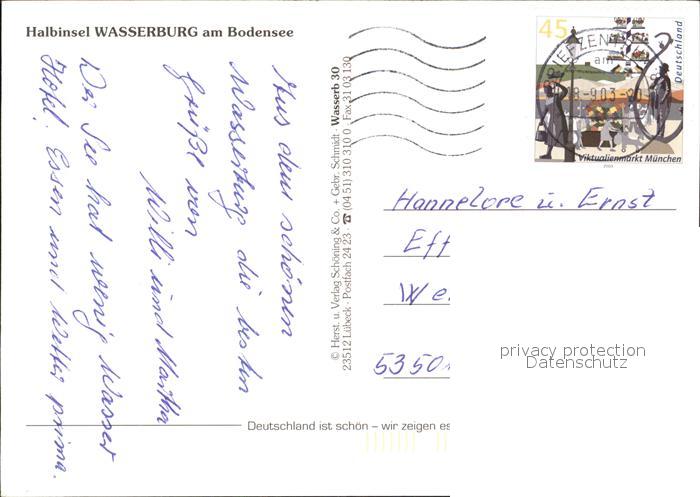 Halbinsel WASSERBURG am Bodensee
Aus dem schönen
Wasserburg die besten
Grüße von
Willi und Martha
Der See hat wenig Wasser
Hotel. Essen und Wetter prima.
© Herst. u. Verlag Schöning & Co. + Gebr. Schmidt · Wasserb 30
23512 Lübeck · Postfach 24 23 · ☎ (04 51) 310 310 0 · Fax 31 03 130
45
Deutschland
Viktualienmarkt München
2003
BRIEFZENTRUM
am
-9.03-20
Hannelore u. Ernst
Eff
We
5350
privacy protection
Datenschutz
Deutschland ist schön – wir zeigen es